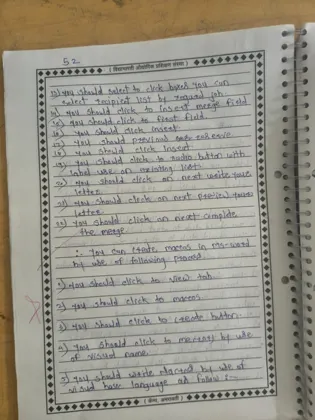 52
13) you should select to click by you can
select recipient list by record job.
14) you should click to insert merge field
15) you should click to first field
16) you should click insert
17) you should previous
18) you should click insert
19) you should click to radio button with
label use on existing list.
20) you should click on next write your
letter.
21) you should click on next preview your
letter
22) you should click on next complete
the merge
∴ you can create macros in ms-word
by use of following proced
1) you should click to view tab
2) you should click to macros
3) you should click to create button.
4) you should click to by use
of visual name
5) you should write by use of
visual basic language as follow :-